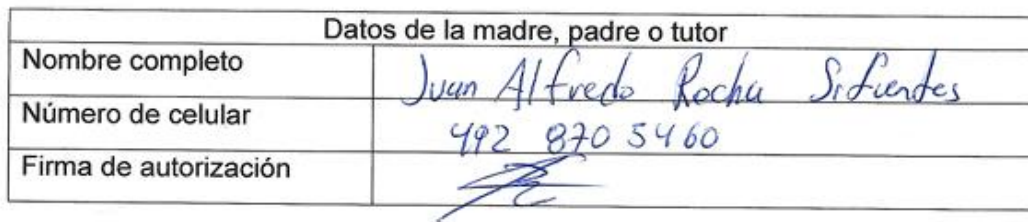 Datos de la madre, padre o tutor
Nombre completo Juan Alfredo Rocha Sifuentes
Número de celular 492 870 5460
Firma de autorización